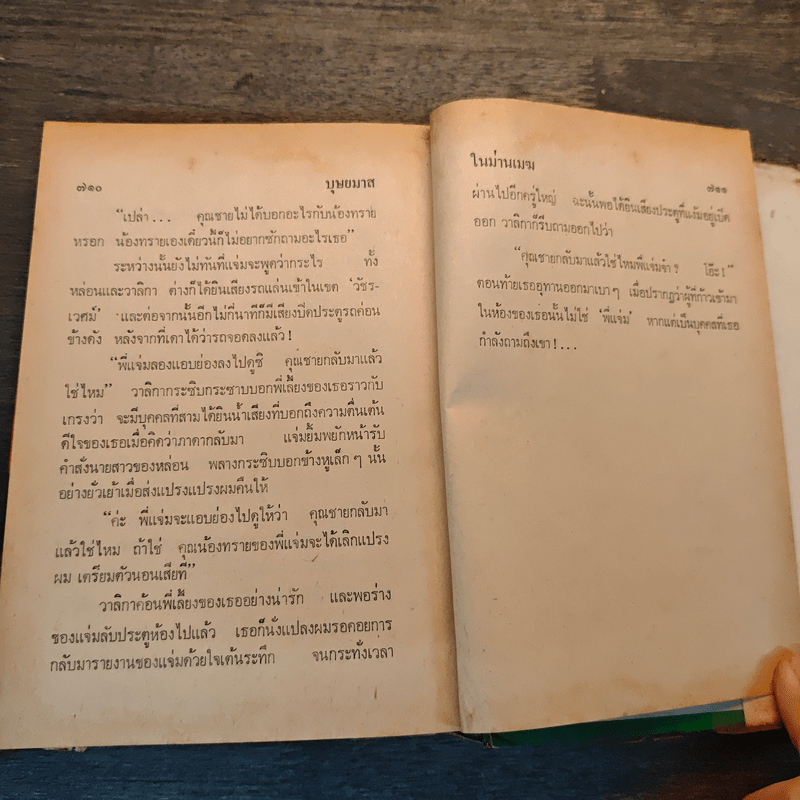 ๗๑๐ บุษยมาส
“เปล่า... คุณชายไม่ได้บอกอะไรกับน้องทราย
หรอก น้องทรายเองเดี๋ยวนี้ก็ไม่อยากซักถามอะไรเธอ”
ระหว่างนั้นยังไม่ทันที่แจ่มจะพูดว่ากระไร ทั้ง
หล่อนและวาลิกา ต่างก็ได้ยินเสียงรถแล่นเข้าในเขต ‘วัชร-
เวศม์’ และต่อจากนั้นอีกไม่กี่นาทีก็มีเสียงปิดประตูรถค่อน
ข้างดัง หลังจากที่เดาได้ว่ารถจอดลงแล้ว!
“พี่แจ่มลองแอบย่องลงไปดูซิ คุณชายกลับมาแล้ว
ใช่ไหม” วาลิกากระซิบกระซาบบอกพี่เลี้ยงของเธอราวกับ
เกรงว่า จะมีบุคคลที่สามได้ยินน้ำเสียงที่บอกถึงความตื่นเต้น
ดีใจของเธอเมื่อคิดว่าภาดากลับมา แจ่มยิ้มพยักหน้ารับ
คำสั่งนายสาวของหล่อน พลางกระซิบบอกข้างหูเล็ก ๆ นั้น
อย่างยั่วเย้าเมื่อส่งแปรงแปรงผมคืนให้
“ค่ะ พี่แจ่มจะแอบย่องไปดูให้ว่า คุณชายกลับมา
แล้วใช่ไหม ถ้าใช่ คุณน้องทรายของพี่แจ่มจะได้เลิกแปรง
ผม เตรียมตัวนอนเสียที”
วาลิกาค้อนพี่เลี้ยงของเธออย่างน่ารัก และพอร่าง
ของแจ่มลับประตูห้องไปแล้ว เธอก็นั่งแปลงผมรอคอยการ
กลับมารายงานของแจ่มด้วยใจเต้นระทึก จนกระทั่งเวลา
ในม่านเมฆ ๗๑๑
ผ่านไปอีกครู่ใหญ่ ฉะนั้นพอได้ยินเสียงประตูที่แง้มอยู่เปิด
ออก วาลิกาก็รีบถามออกไปว่า
“คุณชายกลับมาแล้วใช่ไหมพี่แจ่มจ๋า? โอ๊ะ!”
ตอนท้ายเธออุทานออกมาเบา ๆ เมื่อปรากฏว่าผู้ที่ก้าวเข้ามา
ในห้องของเธอนั้นไม่ใช่ ‘พี่แจ่ม’ หากแต่เป็นบุคคลที่เธอ
กำลังถามถึงเขา!...